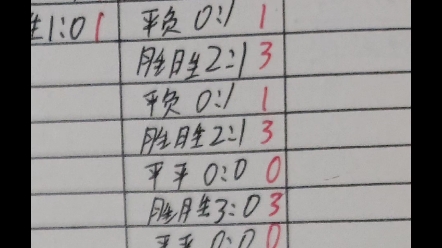 胜1:0 1
平负 0:1 1
胜胜2:1 3
平负 0:1 1
胜胜2:1 3
平平 0:0 0
胜胜3:0 3
平平 0:0 0